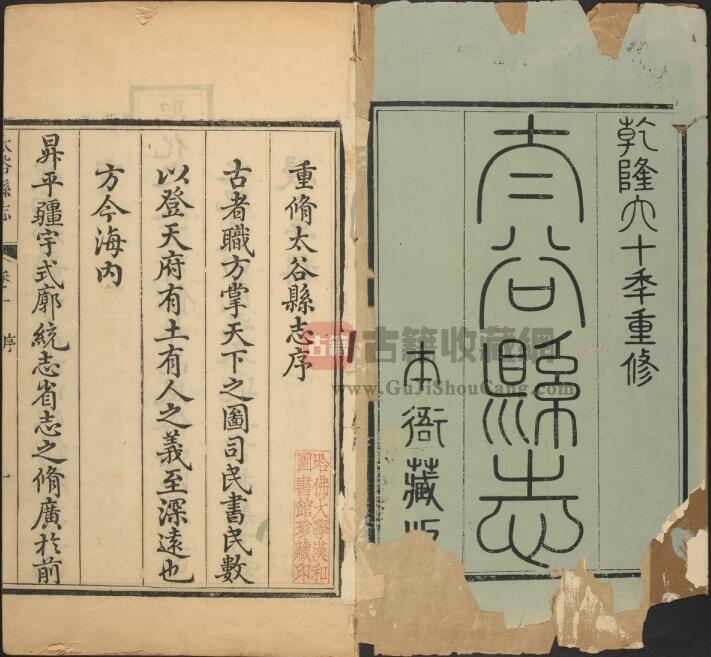 乾隆六十年重修
太谷縣志
本衙藏版
重脩太谷縣志序
古者職方掌天下之圖司民書民數
以登天府有土有人之義至深遠也
方今海內
昇平疆宇式廓統志省志之脩廣於前
太谷縣志
序
一
哈佛大學漢和
圖書館珍藏印
古籍
古籍收藏網
www.GuJiShouCang.com